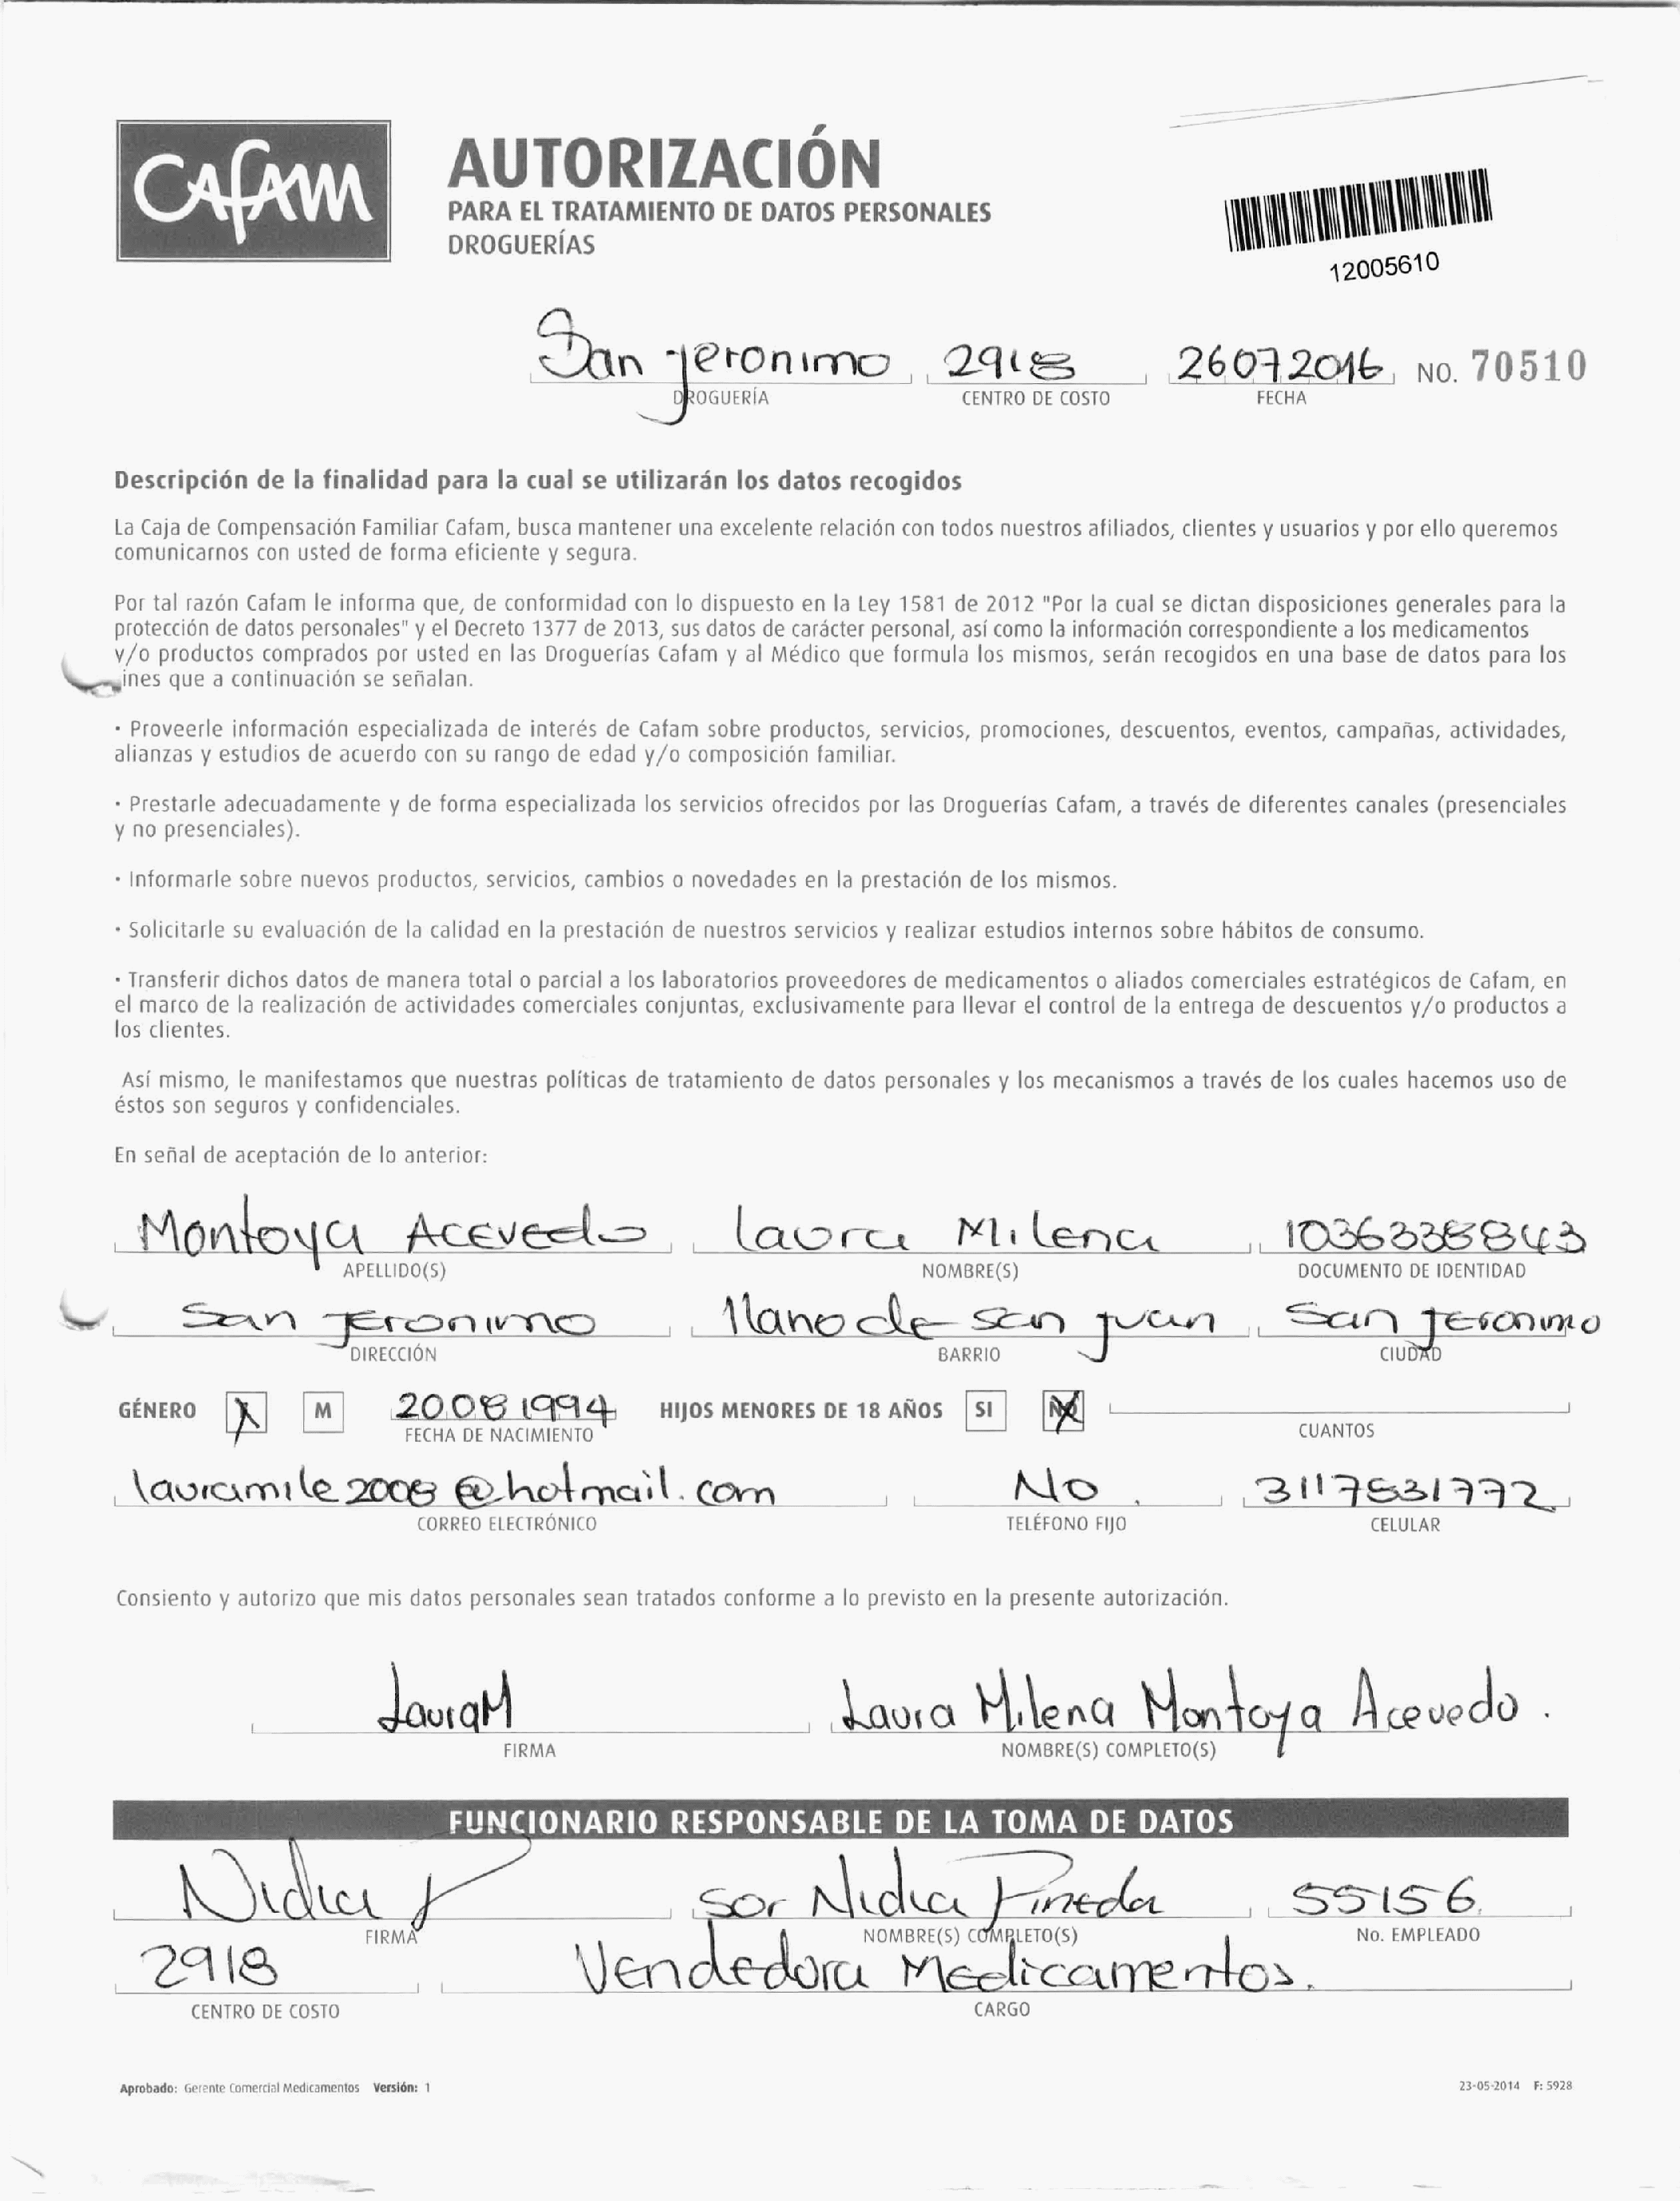 CAFAM
AUTORIZACIÓN
PARA EL TRATAMIENTO DE DATOS PERSONALES
DROGUERÍAS
12005610
San Jeronimo 2918 26072016 NO. 70510
DROGUERÍA CENTRO DE COSTO FECHA
Descripción de la finalidad para la cual se utilizarán los datos recogidos
La Caja de Compensación Familiar Cafam, busca mantener una excelente relación con todos nuestros afiliados, clientes y usuarios y por ello queremos
comunicarnos con usted de forma eficiente y segura.
Por tal razón Cafam le informa que, de conformidad con lo dispuesto en la Ley 1581 de 2012 "Por la cual se dictan disposiciones generales para la
protección de datos personales" y el Decreto 1377 de 2013, sus datos de carácter personal, así como la información correspondiente a los medicamentos
y/o productos comprados por usted en las Droguerías Cafam y al Médico que formula los mismos, serán recogidos en una base de datos para los
ines que a continuación se señalan.
· Proveerle información especializada de interés de Cafam sobre productos, servicios, promociones, descuentos, eventos, campañas, actividades,
alianzas y estudios de acuerdo con su rango de edad y/o composición familiar.
· Prestarle adecuadamente y de forma especializada los servicios ofrecidos por las Droguerías Cafam, a través de diferentes canales (presenciales
y no presenciales).
· Informarle sobre nuevos productos, servicios, cambios o novedades en la prestación de los mismos.
· Solicitarle su evaluación de la calidad en la prestación de nuestros servicios y realizar estudios internos sobre hábitos de consumo.
· Transferir dichos datos de manera total o parcial a los laboratorios proveedores de medicamentos o aliados comerciales estratégicos de Cafam, en
el marco de la realización de actividades comerciales conjuntas, exclusivamente para llevar el control de la entrega de descuentos y/o productos a
los clientes.
Así mismo, le manifestamos que nuestras políticas de tratamiento de datos personales y los mecanismos a través de los cuales hacemos uso de
éstos son seguros y confidenciales.
En señal de aceptación de lo anterior:
Montoya Acevedo Laura Milena
APELLIDO(S) NOMBRE(S) DOCUMENTO DE IDENTIDAD
San Jeronimo llano de san juan San Jeronimo
DIRECCIÓN BARRIO CIUDAD
GÉNERO M 20081994 HIJOS MENORES DE 18 AÑOS SI NO
FECHA DE NACIMIENTO CUANTOS
lauramile2008@hotmail.com No 3117531772
CORREO ELECTRÓNICO TELÉFONO FIJO CELULAR
Consiento y autorizo que mis datos personales sean tratados conforme a lo previsto en la presente autorización.
LauraM Laura Milena Montoya Acevedo.
FIRMA NOMBRE(S) COMPLETO(S)
FUNCIONARIO RESPONSABLE DE LA TOMA DE DATOS
Nidia P Sor Nidia Pineda 55156
FIRMA NOMBRE(S) COMPLETO(S) No. EMPLEADO
2918 Vendedora Medicamentos.
CENTRO DE COSTO CARGO
Aprobado: Gerente Comercial Medicamentos Versión: 1 23-05-2014 F: 5928